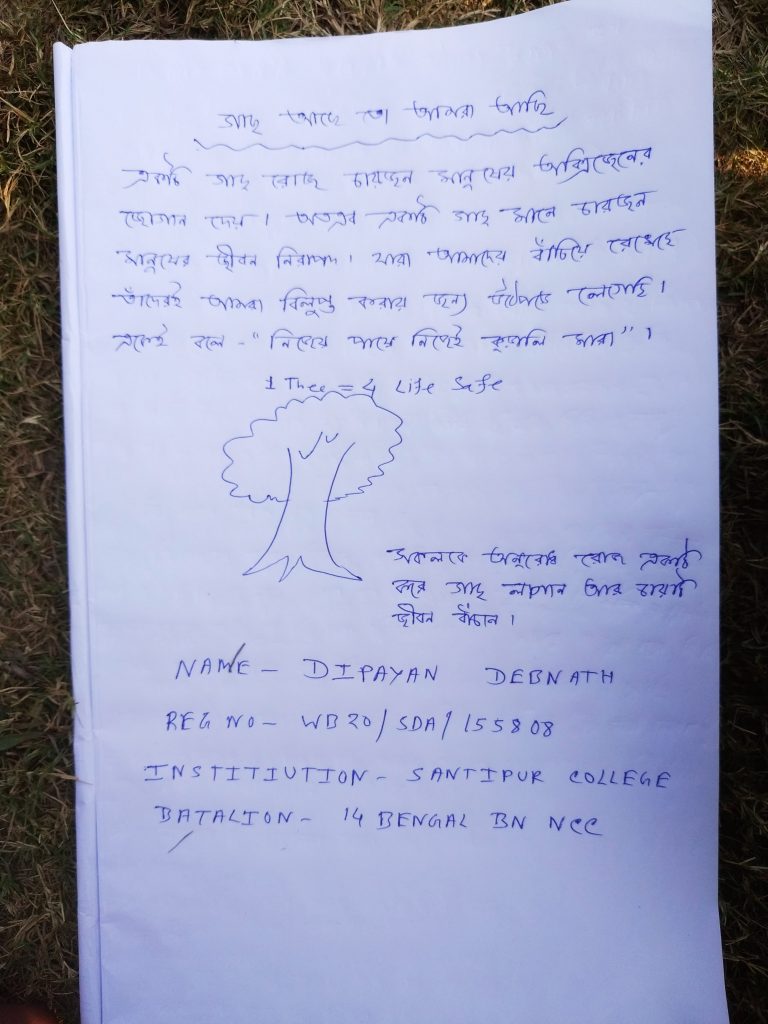 গাছ আছে তো আমরা আছি
একটি গাছ রোজ চারজন মানুষের অক্সিজেনের
জোগান দেয়। অতএব একটি গাছ মানে চারজন
মানুষের জীবন নিরাপদ। যারা আমাদের বাঁচিয়ে রেখেছে
তাঁদেরই আমরা বিলুপ্ত করার জন্য উঠেপড়ে লেগেছি।
একেই বলে - "নিজের পায়ে নিজেই কুড়ালি মারা"।
1 Thee = 4 Life Safe
সকলকে অনুরোধ রোজ একটি
করে গাছ লাগান আর চারটি
জীবন বাঁচান।
NAME - DIPAYAN DEBNATH
REG NO - WB20/SDA/155808
INSTITIUTION - SANTIPUR COLLEGE
BATALION - 14 BENGAL BN NCC